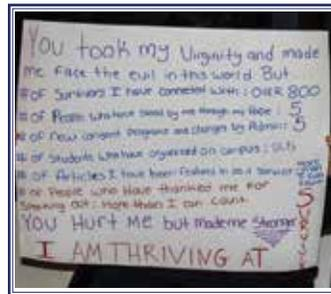 You took my Virginity and made
me face the evil in this world. But
# of Survivors I have connected with: OVER 800
# of People who have stood by me through my Rape: 5
# of new consent programs and changes by Admin: 3
# of Students who have organized on campus:
# of Articles I have been featured in as a Survivor
# of People who Have thanked me For
Speaking out: more than I can count
YOU HURT ME but made me Stronger
I AM THRIVING AT